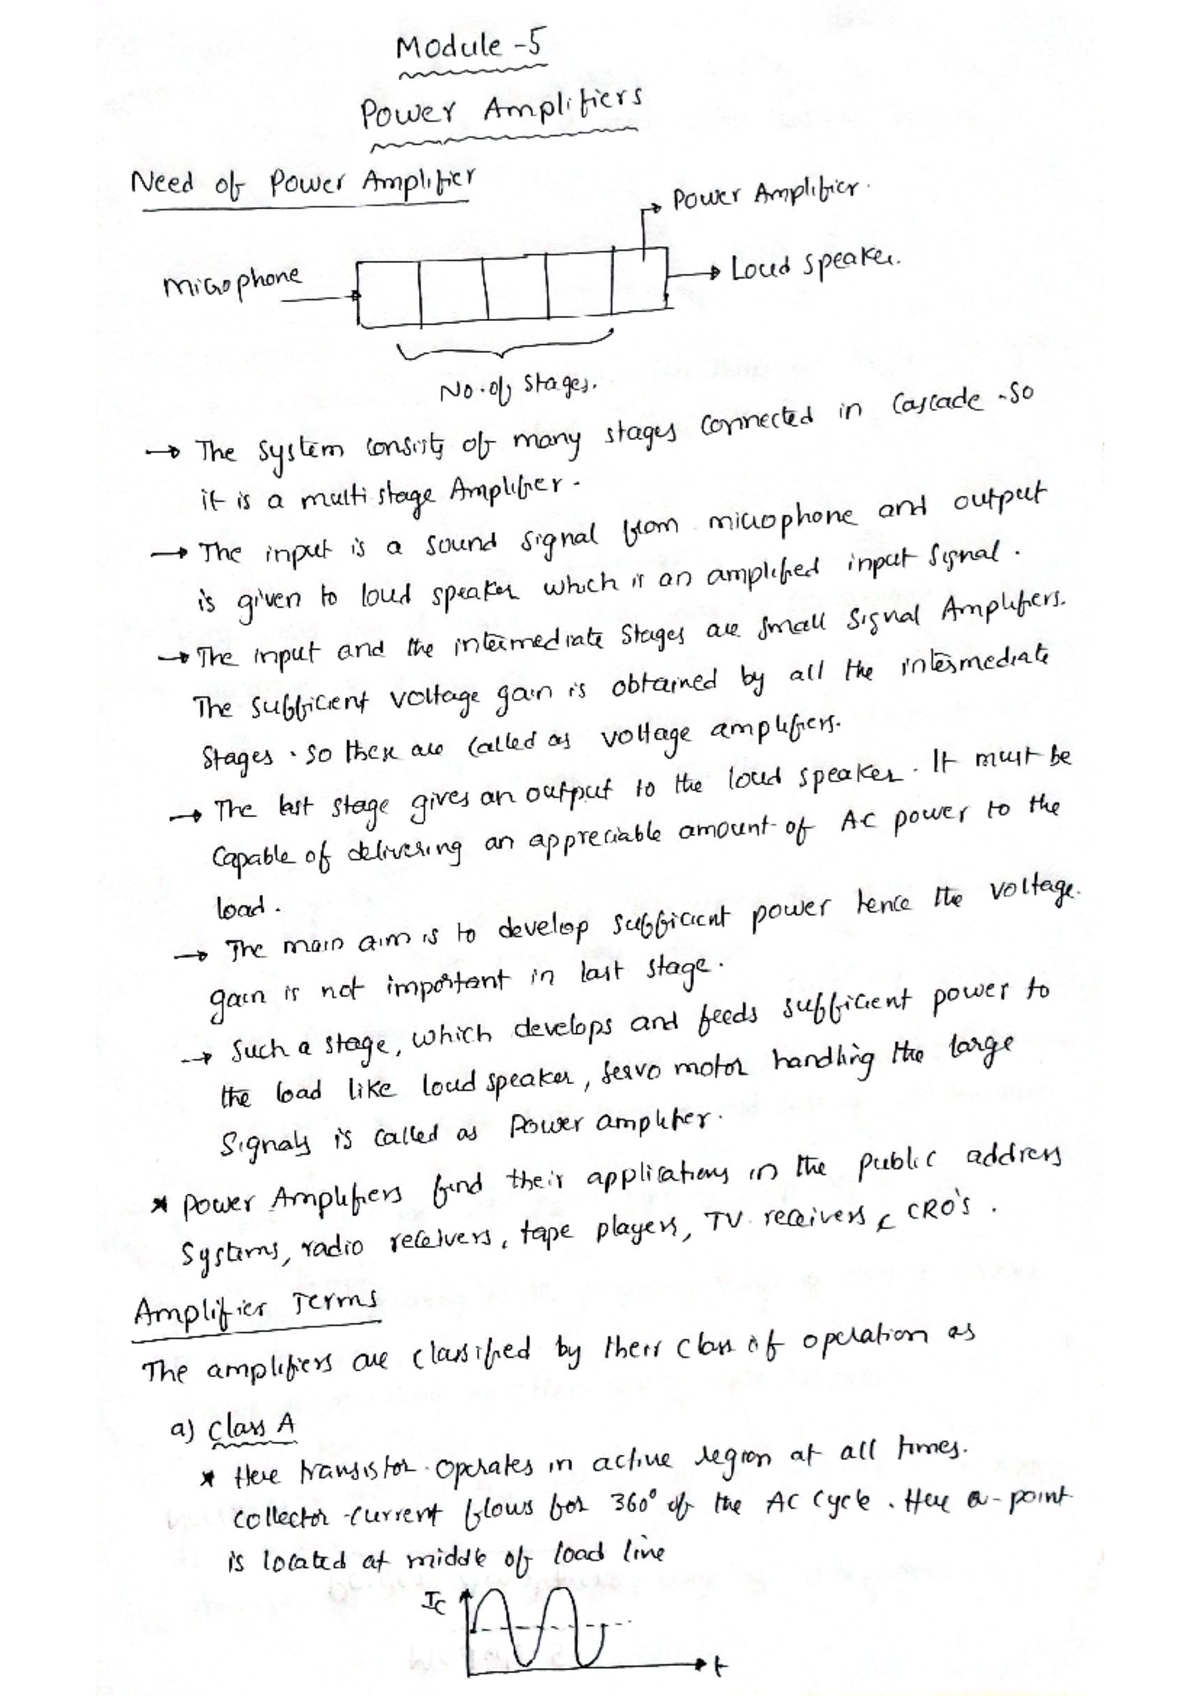 Module -5
Power Amplifiers
Need of Power Amplifier
Power Amplifier.
Microphone
Loud speaker.
No. of stages.
→ The system consists of many stages connected in cascade. So
it is a multi stage Amplifier.
→ The input is a sound signal from microphone and output
is given to loud speaker which is an amplified input signal.
→ The input and the intermediate stages are small signal Amplifiers.
The sufficient voltage gain is obtained by all the intermediate
stages. So these are called as voltage amplifiers.
→ The last stage gives an output to the loud speaker. It must be
capable of delivering an appreciable amount of AC power to the
load.
→ The main aim is to develop sufficient power hence the voltage.
gain is not important in last stage.
→ Such a stage, which develops and feeds sufficient power to
the load like loud speaker, servo motor handling the large
signals is called as Power amplifier.
* Power Amplifiers find their applications in the public address
systems, radio receivers, tape players, TV receivers & CRO's.
Amplifier Terms
The amplifiers are classified by their class of operation as
a) Class A
* Here transistor operates in active region at all times.
collector current flows for 360° of the AC cycle. Here Q-point
is located at middle of load line
Ic
t